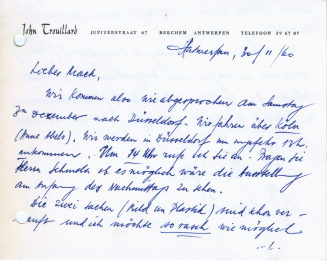 John Trouillard
JUPITERSTRAAT 67 BERCHEM ANTWERPEN TELEFOON 39 67 07
Antwerpen, 30/11/60
Lieber Mack,
Wir kommen also wie abgesprochen am Samstag
Dezember nach Düsseldorf. Wir fahren über Köln
(Anne Abels). Wir werden in Düsseldorf um ungefähr
ankommen. Um 14 Uhr rufe ich Sie an. Fragen Sie
Herrn Schmela ob es möglich wäre die Ausstellung
am Anfang des Nachmittags zu sehen.
Die zwei Sachen (Bild und Plastik) sind schon ver-
kauft und ich möchte so rasch wie möglich
-/-